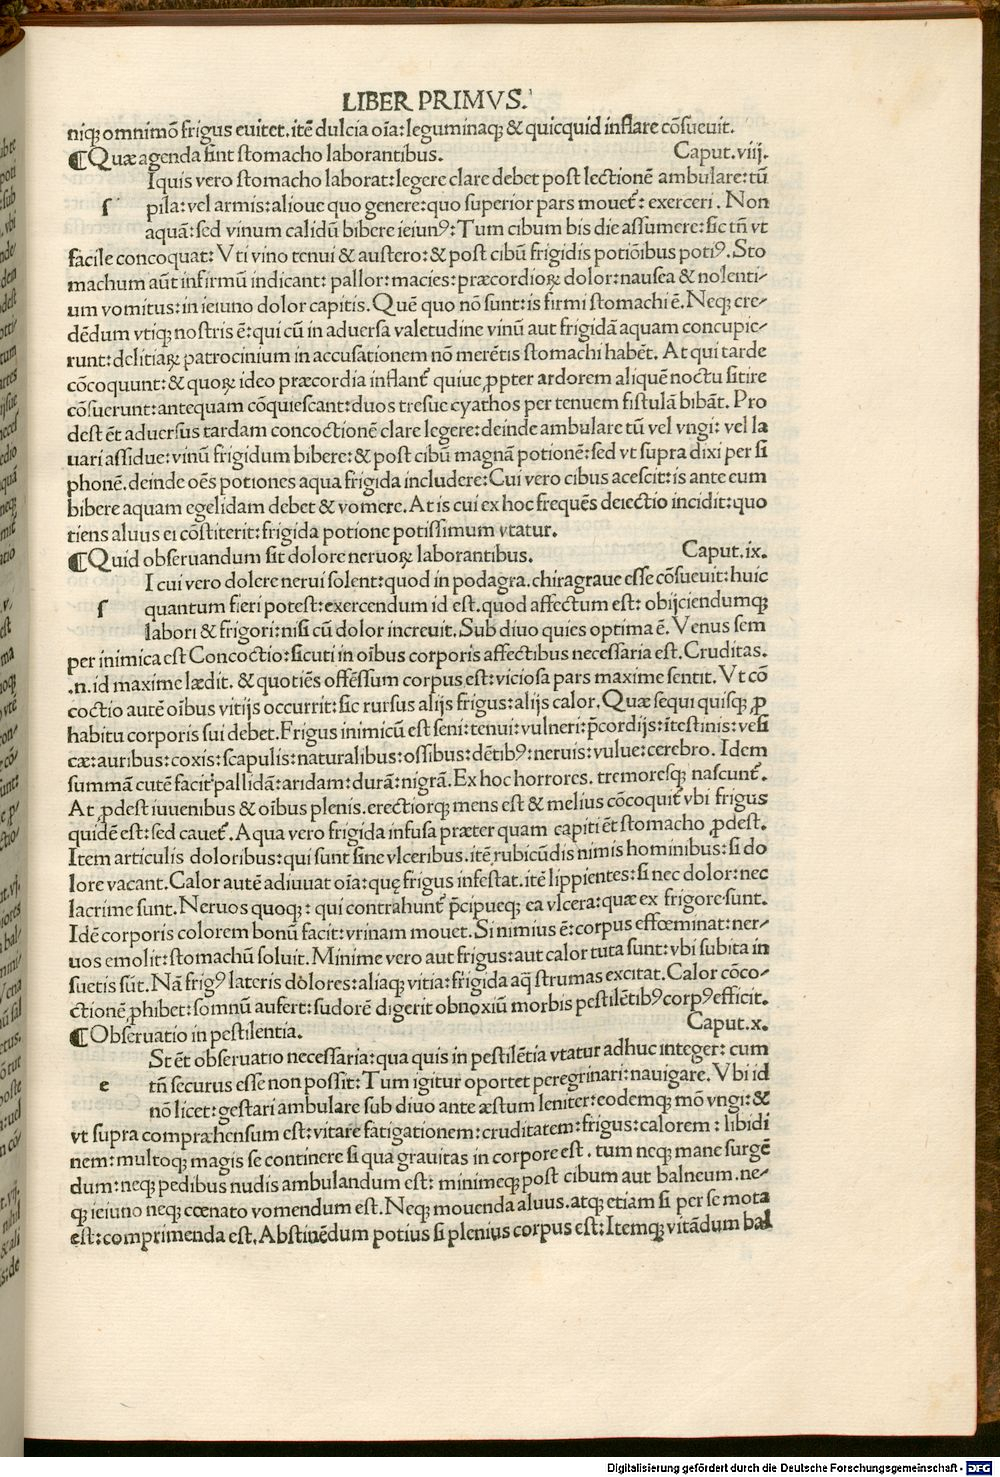 LIBER PRIMVS.
niqꝫ omnimō frigus euitet.itē dulcia oīa:leguminaqꝫ & quicquid inflare cōſueuit.
¶Quæ agenda ſint ſtomacho laborantibus. Caput.viij.
Iquis vero ſtomacho laborat:legere clare debet poſt lectionē ambulare:tū
ſ pila:vel armis:alioue quo genere:quo ſuperior pars mouet᷑: exerceri. Non
aquā:ſed vinum calidū bibere ieiunꝰ:Tum cibum bis die aſſumere:ſic tn̄ vt
facile concoquat: Vti vino tenui & auſtero:& poſt cibū frigidis potiōibus potiꝰ. Sto
machum aūt infirmū indicant: pallor:macies:præcordioꝝ dolor:nauſea & nolenti-
um vomitus:in ieiuno dolor capitis.Quē quo nō ſunt:is firmi ſtomachi ē. Neqꝫ cre-
dēdum vtiqꝫ noſtris ē:qui cū in aduerſa valetudine vinū aut frigidā aquam concupic-
runt:delitiaꝝ patrocinium in accuſationem nō merētis ſtomachi habēt. At qui tarde
cōcoquunt:& quoꝝ ideo præcordia inflant᷑ quiue ꝓpter ardorem aliquē noctu ſitire
cōſuerunt:antequam cōquieſcant:duos treſue cyathos per tenuem fiſtulā bibāt. Pro
deſt ēt aduerſus tardam concoctionē clare legere:deinde ambulare tū vel vngi: vel la
uari aſſidue:vinū frigidum bibere:& poſt cibū magnā potionē:ſed vt ſupra dixi per ſi
phonē.deinde oēs potiones aqua frigida includere:Cui vero cibus aceſcit:is ante eum
bibere aquam egelidam debet & vomere. At is cui ex hoc frequēs deiectio incidit:quo
tiens aluus ei cōſtiterit:frigida potione potiſſimum vtatur.
¶Quid obſeruandum ſit dolore neruoꝝ laborantibus. Caput.ix.
I cui vero dolere nerui ſolent:quod in podagra.chiragraue eſſe cōſueuit:huic
ſ quantum fieri poteſt:exercendum id eſt.quod affectum eſt: obijciendumqꝫ
labori & frigori:niſi cū dolor increuit.Sub diuo quies optima ē. Venus ſem
per inimica eſt Concoctio:ſicuti in oībus corporis affectibus neceſſaria eſt. Cruditas.
.n.id maxime lædit. & quotiēs offēſſum corpus eſt:viciosa pars maxime ſentit. Vt cō
coctio autē oībus vitijs occurrit:ſic rurſus alijs frigus:alijs calor.Quæ ſequi quiſqꝫ ꝓ
habitu corporis ſui debet.Frigus inimicū eſt ſeni:tenui:vulneri:p̄cordijs:īteſtinis:veſi
cæ:auribus:coxis:ſcapulis:naturalibus:oſſibus:dētibꝰ:neruis:vulue:cerebro. Idem
ſummā cutē facit pallidā:aridam:durā:nigrā.Ex hoc horrores. tremoreſqꝫ naſcunt᷑.
At ꝓdeſt iuuenibus & oībus plenis.erectiorqꝫ mens eſt & melius cōcoquit᷑ vbi frigus
quidē eſt:ſed cauet᷑. Aqua vero frigida infuſa præter quam capiti ēt ſtomacho ꝓdeſt.
Item articulis doloribus:qui ſunt ſine vlceribus.itē rubicūdis nimis hominibus:ſi do
lore vacant.Calor autē adiuuat oīa:quę frigus infeſtat.itē lippientes:ſi nec dolor:nec
lacrime ſunt.Neruos quoqꝫ: qui contrahunt᷑ p̄cipueqꝫ ea vlcera:quæ ex frigore ſunt.
Idē corporis colorem bonū facit:vrinam mouet.Si nimius ē:corpus effœminat:ner-
uos emolit:ſtomachū ſoluit. Minime vero aut frigus:aut calor tuta ſunt:vbi ſubita in
ſuetis ſūt. Nā frigꝰ lateris dolores:aliaqꝫ vitia:frigida aq̄ ſtrumas excitat.Calor cōco-
ctionē ꝓhibet:ſomnū aufert:ſudorē digerit obnoxiū morbis peſtilētibꝰ corpꝰ efficit.
¶Obſeruatio in peſtilentia. Caput.x.
St ēt obſeruatio neceſſaria:qua quis in peſtilētia vtatur adhuc integer: cum
e tn̄ ſecurus eſſe non poſſit:Tum igitur oportet peregrinari:nauigare. Vbi id
nō licet:geſtari ambulare ſub diuo ante æſtum leniter:eodemqꝫ mō vngi:&
vt ſupra compræhenſum eſt:vitare fatigationem:cruditatem:frigus:calorem: libidi
nem:multoqꝫ magis ſe continere ſi qua grauitas in corpore eſt. tum neqꝫ mane ſurgē
dum:neqꝫ pedibus nudis ambulandum eſt: minimeqꝫ poſt cibum aut balneum.ne-
qꝫ ieiuno neqꝫ cœnato vomendum eſt.Neqꝫ mouenda aluus.atqꝫ etiam ſi per ſe mota
eſt:comprimenda eſt.Abſtinēdum potius ſi plenius corpus eſt:Itemqꝫ vitādum bal
Digitalisierung gefördert durch die Deutsche Forschungsgemeinschaft - DFG